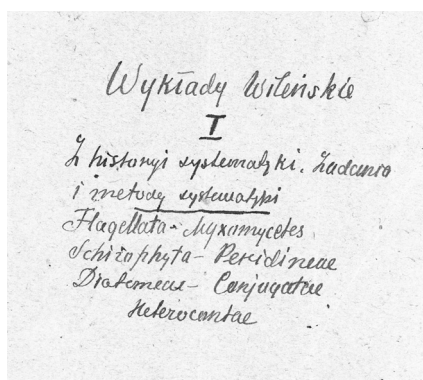 Wykłady Wileńskie
I
Z historyi systematyki. Zadania
i metody systematyki
Flagellata - Myxomycetes
Schizophyta - Peridineae
Diatomeae - Conjugatae
Heterocontae